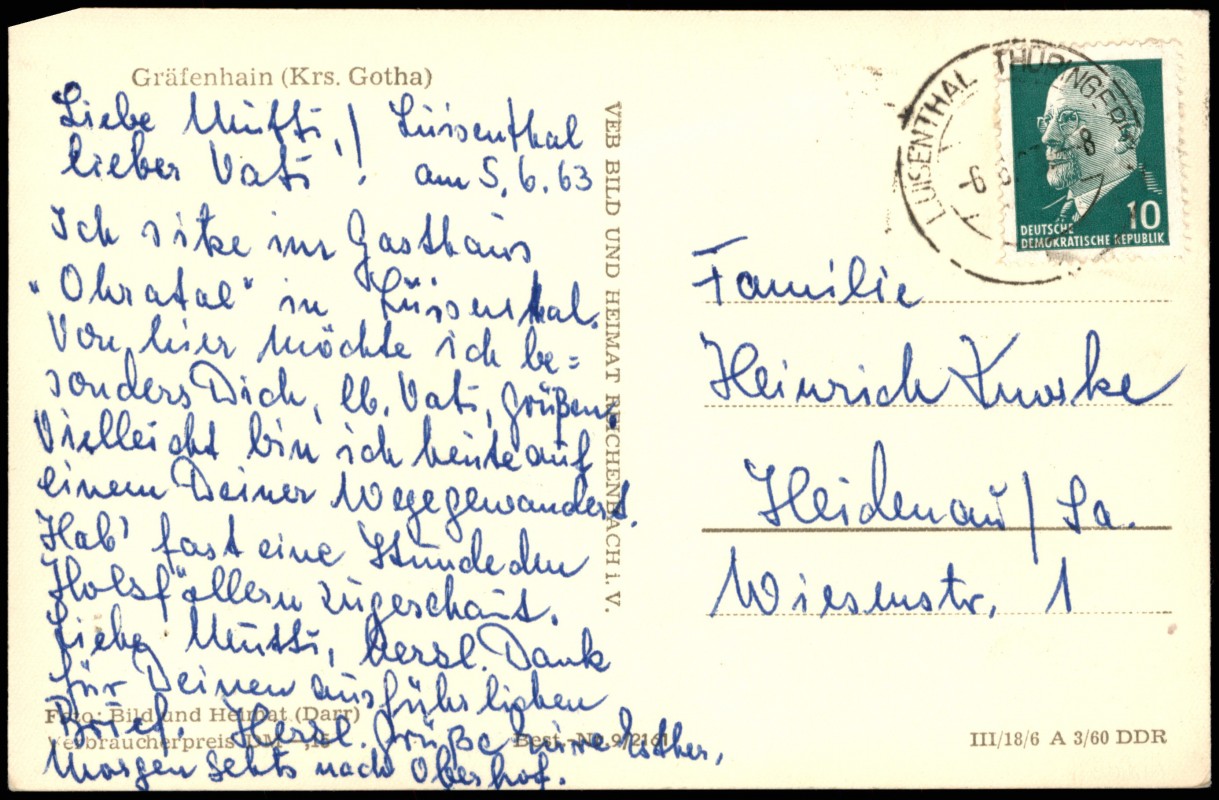 Gräfenhain (Krs. Gotha)
Liebe Mutti, Luisenthal
lieber Vati! am 5.6.63
Ich sitze im Gasthaus
"Ohratal" in Luisenthal.
Von hier möchte ich be=
sonders Dich, lb. Vati, grüßen.
Vielleicht bin ich heute auf
einem Deiner Wege gewandert.
Hab' fast eine Stunde den
Holzfällern zugeschaut.
Liebe Mutti, herzl. Dank
für Deinen ausführlichen
Brief. Herzl. Grüße Esther,
Morgen gehts nach Oberhof.
Foto: Bild und Heimat (Darr)
Verbraucherpreis DM -,15
Best.-Nr. 9/2161
VEB BILD UND HEIMAT REICHENBACH i. V.
LUISENTHAL THÜRINGER
-6 -8
10
DEUTSCHE
DEMOKRATISCHE REPUBLIK
Familie
Heinrich
Heidenau/Sa.
Wiesenstr. 1
III/18/6 A 3/60 DDR